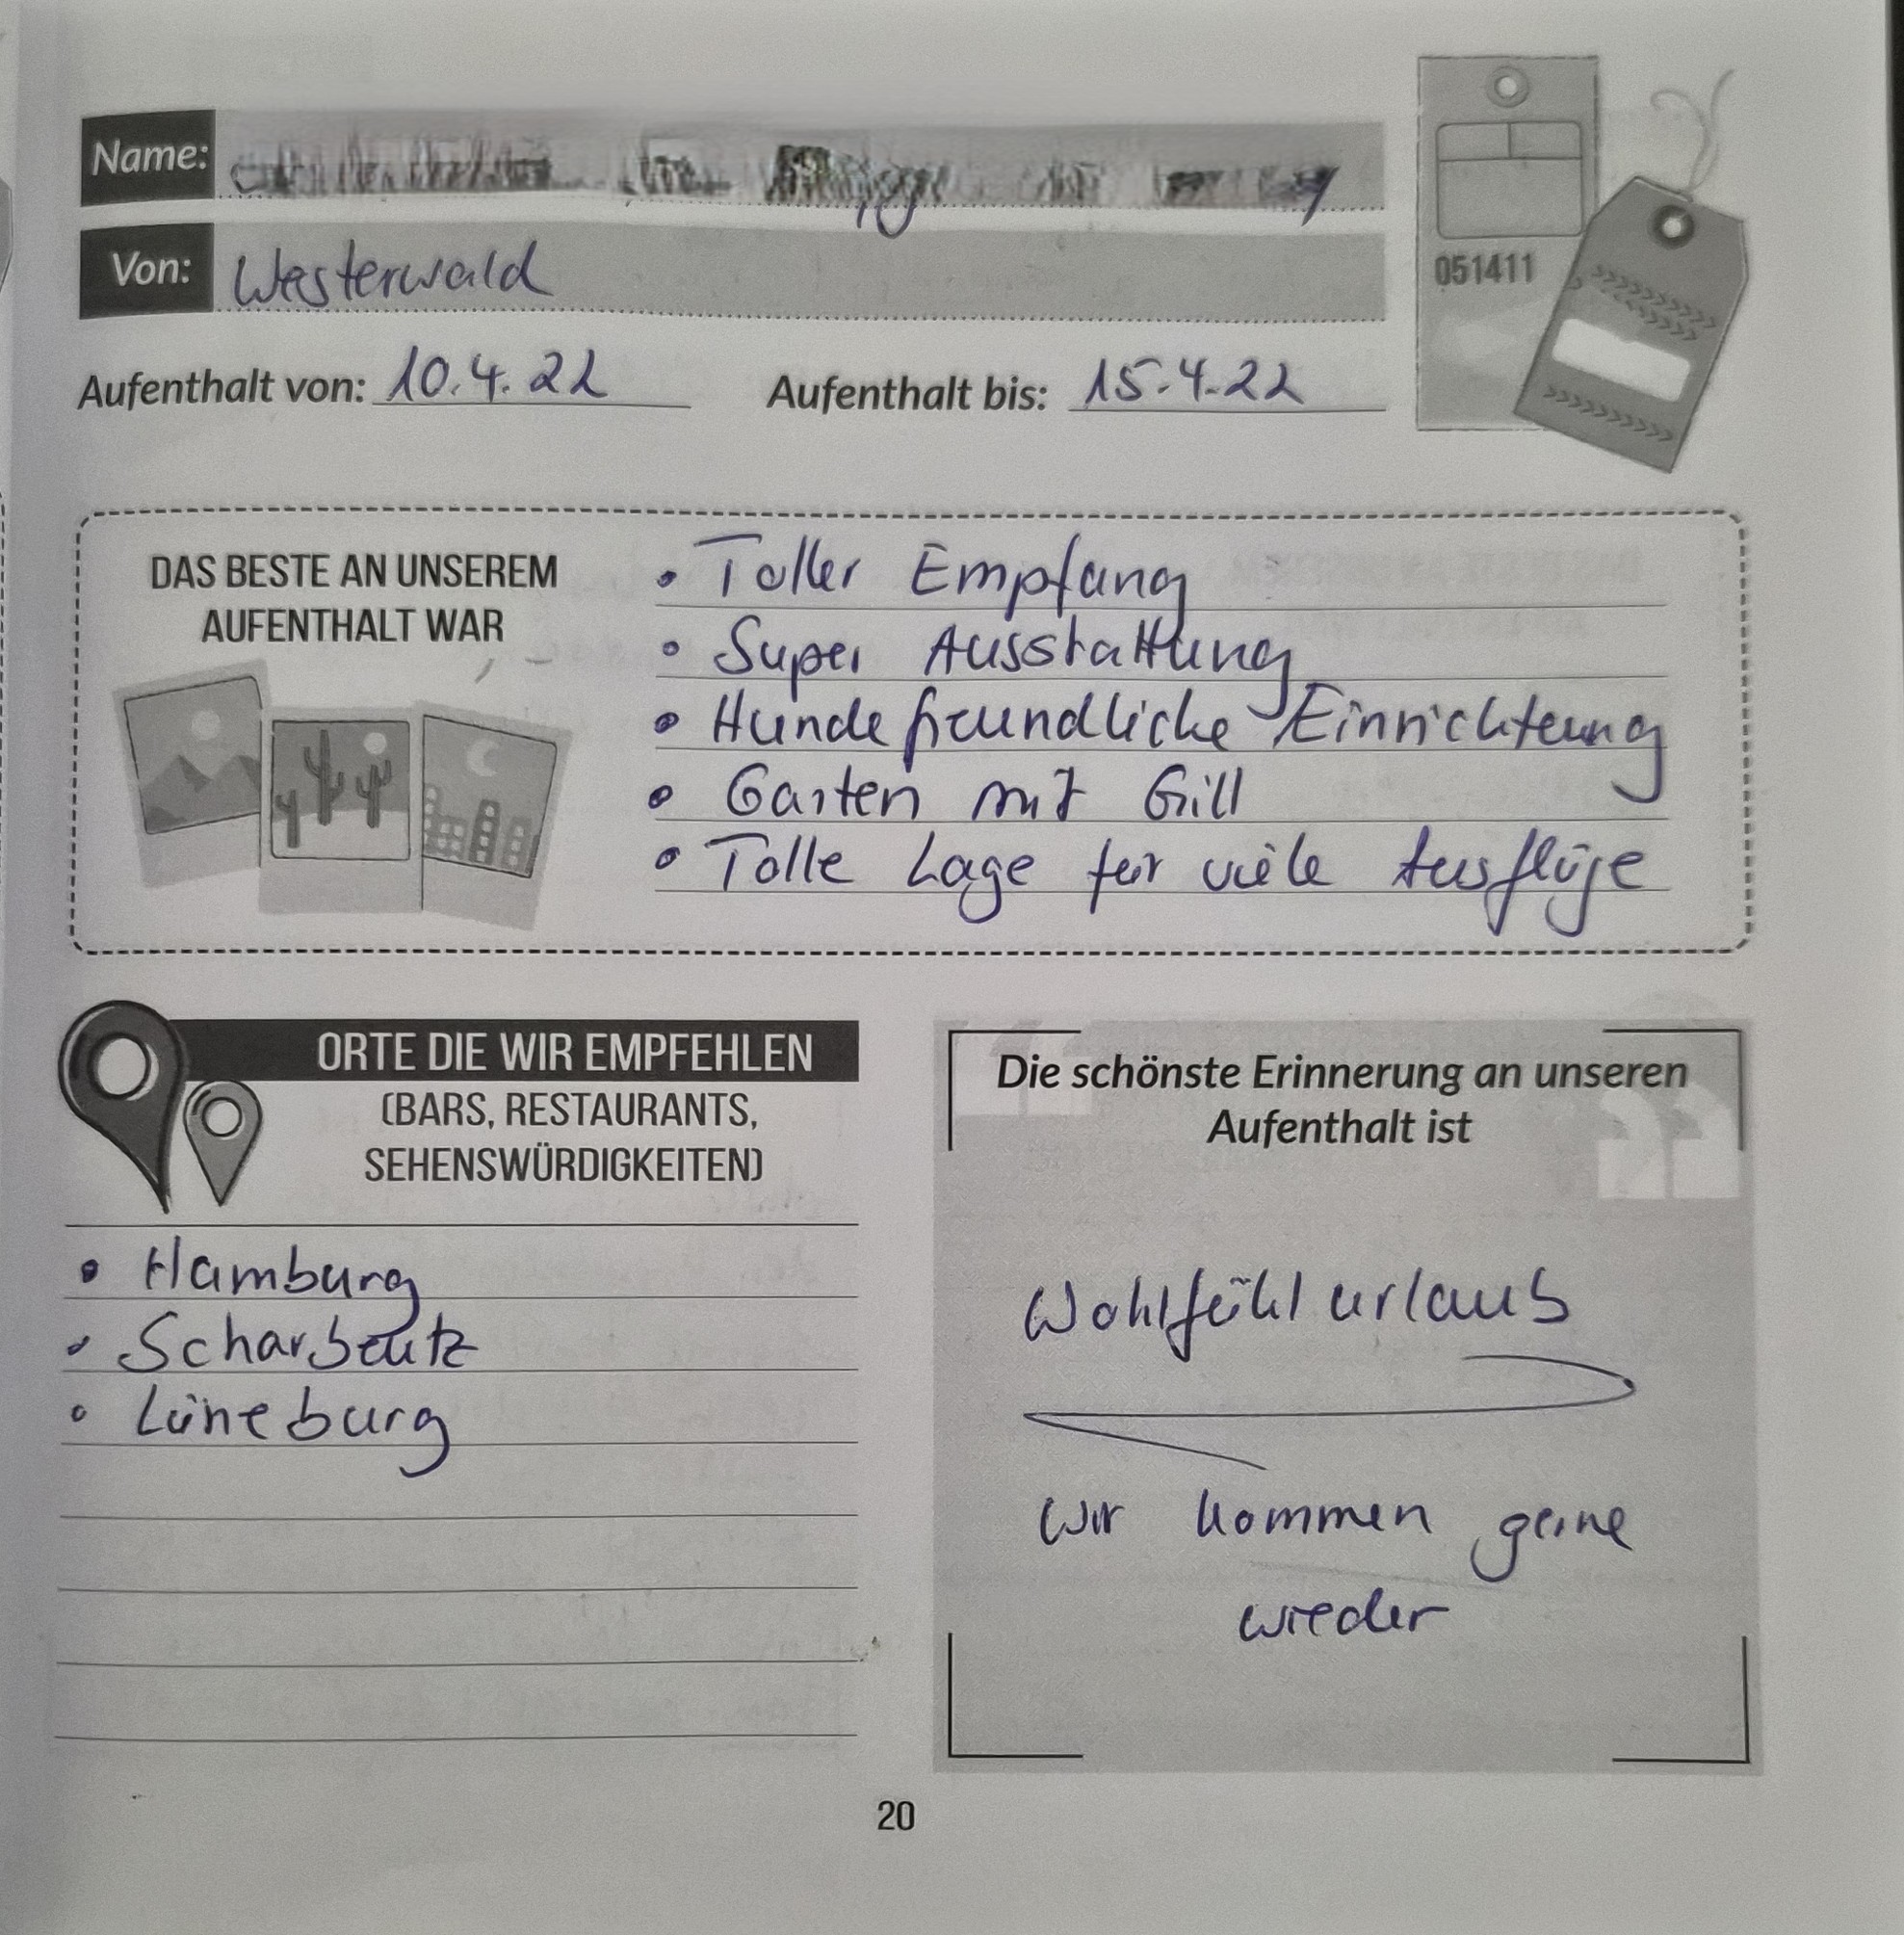 Name:
Von: Westerwald
Aufenthalt von: 10.4.22 Aufenthalt bis: 15.4.22
051411
DAS BESTE AN UNSEREM
AUFENTHALT WAR
• Toller Empfang
• Super Ausstattung
• Hundefreundliche Einrichtung
• Garten mit Grill
• Tolle Lage für viele Ausflüge
ORTE DIE WIR EMPFEHLEN
(BARS, RESTAURANTS,
SEHENSWÜRDIGKEITEN)
• Hamburg
• Scharbeutz
• Lüneburg
Die schönste Erinnerung an unseren
Aufenthalt ist
Wohlfühlurlaub
Wir kommen gerne
wieder
20